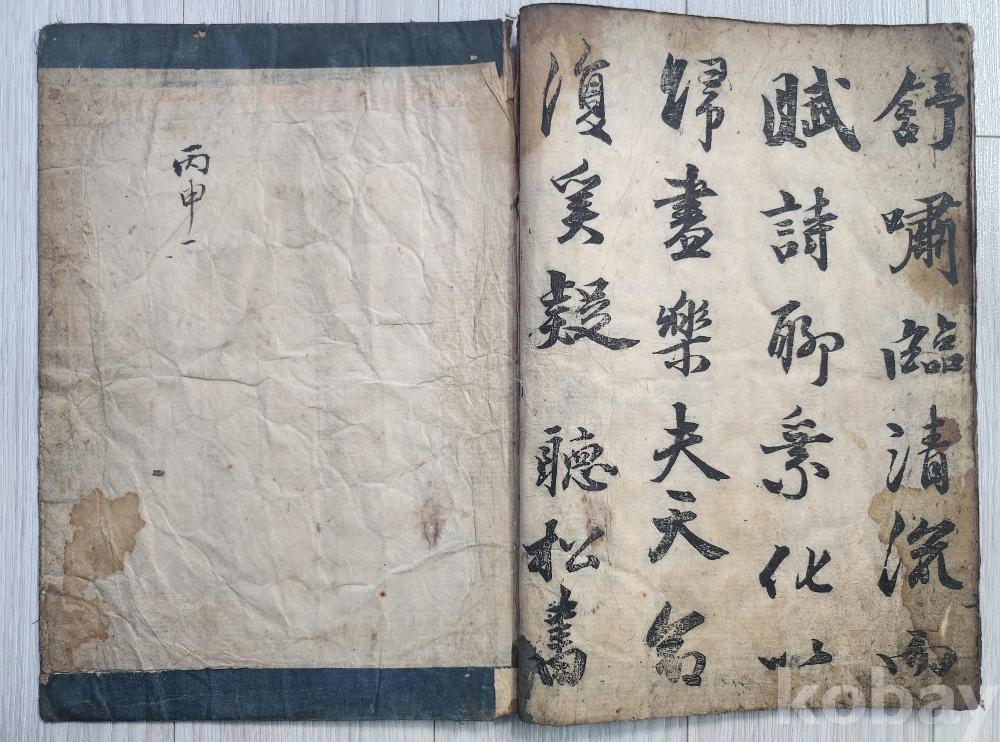 舒嘯臨清流而
賦詩聊乘化以
歸盡樂夫天命
復奚疑 聽松書
丙申一
kobay